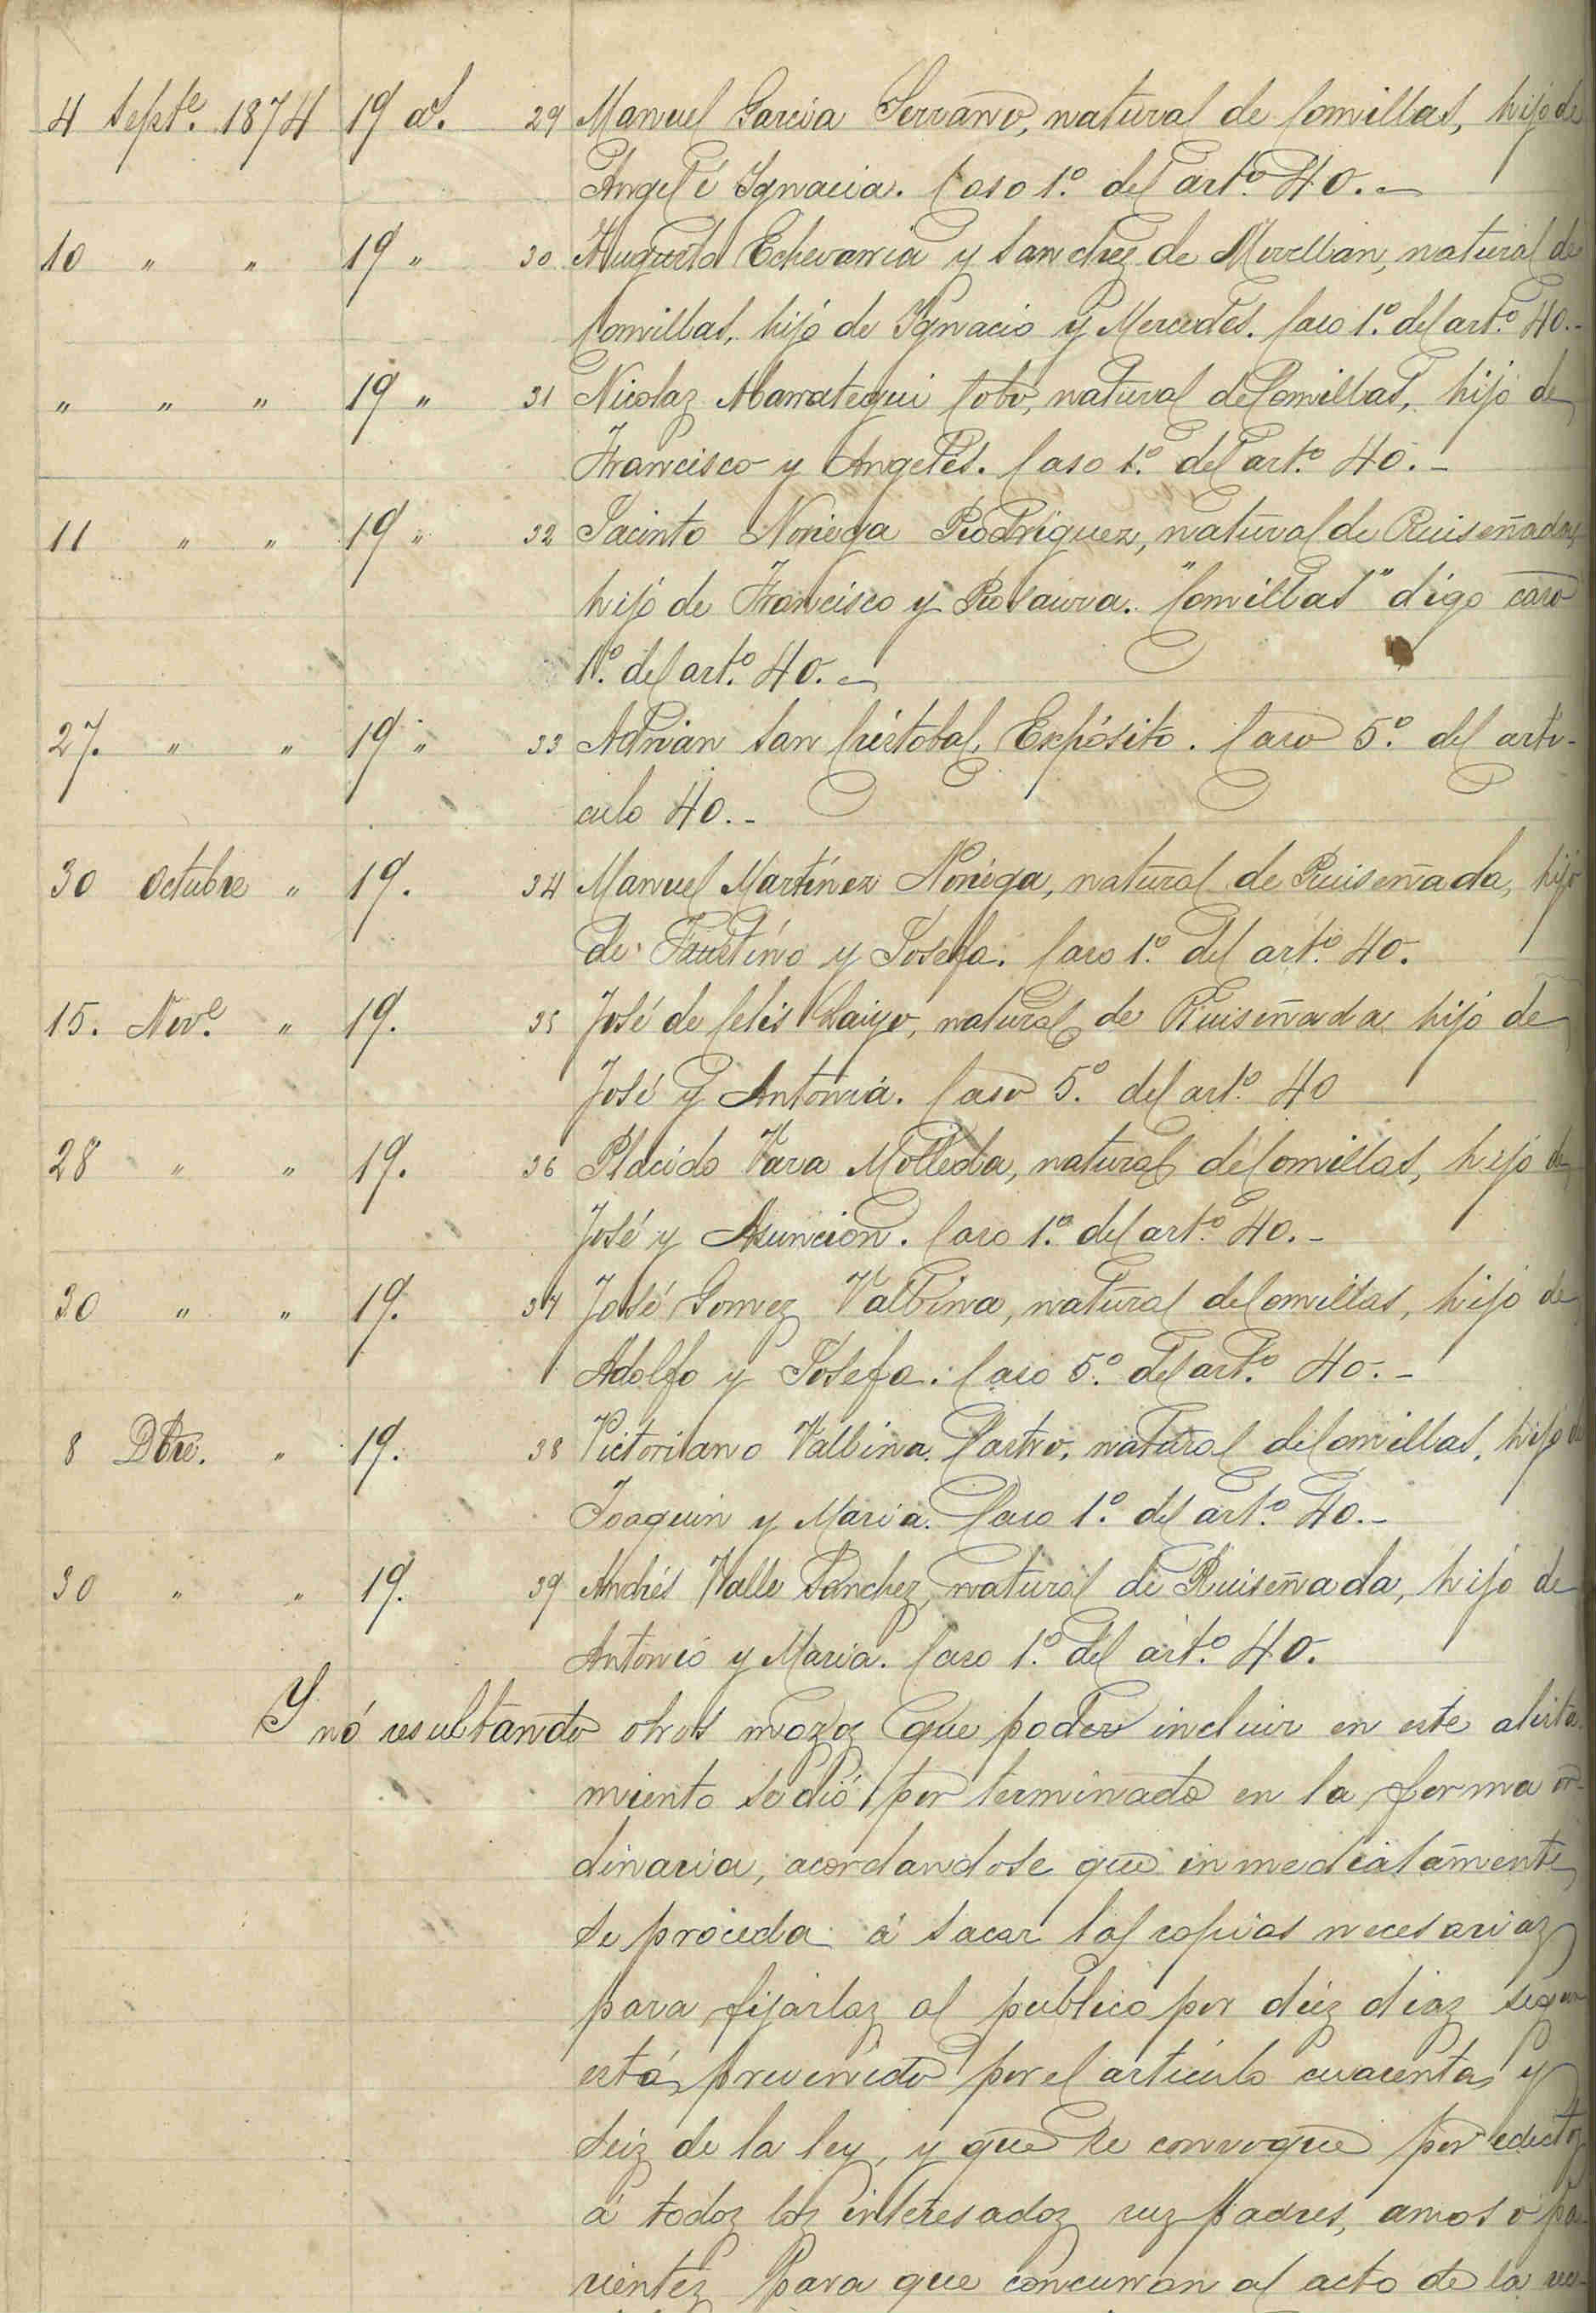 4 Septe. 1874 19 as. 29 Manuel Garcia Serrano, natural de Comillas, hijo de
Angel é Ygnacia. Caso 1º. del artº. 40.-
10 " " 19 " 30 Augusto Echevarria y Sanchez de Movellan, natural de
Comillas, hijo de Ygnacio y Mercedes. Caso 1º. del artº. 40.-
" " " 19 " 31 Nicolaz Abarrategui Cobo, natural de Comillas, hijo de
Francisco y Angeles. Caso 1º. del artº. 40.-
11 " " 19 " 32 Jacinto Noriega Rodriguez, natural de Ruiseñada,
hijo de Francisco y Rosaura. "Comillas" digo caso
1º. del artº. 40.-
27. " " 19 " 33 Adrian San Cristobal, Expósito. Caso 5º. del arti-
culo 40.-
30 Octubre " 19. 34 Manuel Martínez Noriega, natural de Ruiseñada, hijo
de Faustino y Josefa. Caso 1º. del artº. 40.
15. Nove. " 19. 35 José de Celis, natural de Ruiseñada hijo de
José y Antonia. Caso 5º. del artº. 40
28 " " 19. 36 Placido Vara Molleda, natural de Comillas, hijo de
José y Asuncion. Caso 1º. del artº. 40.-
30 " " 19. 37 José Gomez Valbina, natural de Comillas, hijo de
Adolfo y Josefa. Caso 5º. del artº. 40.-
8 Dbre. " 19. 38 Victoriano Valbina Castro, natural de Comillas, hijo de
Joaquin y Maria. Caso 1º. del artº. 40.-
30 " " 19. 39 Andrés Valle Sanchez, natural de Ruiseñada, hijo de
Antonio y Maria. Caso 1º. del artº. 40.
Y nó resultando otros mozoz que poder incluir en este alista-
miento se dió por terminado en la forma or-
dinaria, acordandose que inmediatamente
se proceda á sacar las copias necesariaz
para fijarlaz al publico por diez diaz segun
está prevenido por el artículo cuarenta y
seiz de la ley, y que se convoque por edictoz
á todoz loz interesadoz suz padres, amos o pa-
rientez para que concurran al acto de la rec-